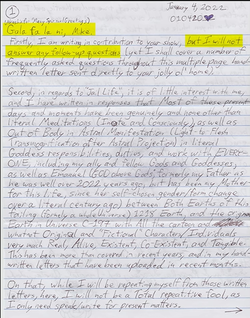 ①
January 4, 2022
01042022
Gula fa la ni, Mike.
Firstly, I am writing in contribution to your show, but I will not
answer any follow-up questions (yet I shall cover a number of
frequently asked questions throughout this multiple page hand
written letter suit directly to your jolly ol' home).
Secondly, in regards to Jail Life, it is of little interest with me,
and I have written in responses that Most of these present
days and moments have been genuinely and honest other than
literal Meditations (Irate and Consciously) as well as
Out of Body in Astral Manifestation (Light to Flesh
Transmogrification after Astral Projection) in Literal
Goddess responsibilities, duties, and such with EVERY-
ONE, including my ally and Fellow Gods and Goddesses,
as well as Emanuel (GOD above Gods; formerly my Father as
he was well over 2022 years ago, but has been my Mother
for this life, since her self-choice gender form change
over a literal century ago) between Both Earths of His
tailing (formerly a whole Universe) 1218 Earth, and
Earth in Universe C-197 with All the Cartoon and
whatnot Original and "Fictional" Character/Individuals
very much Real, Alive, Existent, Co-Existent, and Tangible.
This has been more than covered in recent years, and in my hand
written letters that have been uploaded in recent months.
On that, while I will be repeating myself from those written
letters, here, I will not be a Total repetitive Tool, as
I only need speak/write for present matters.